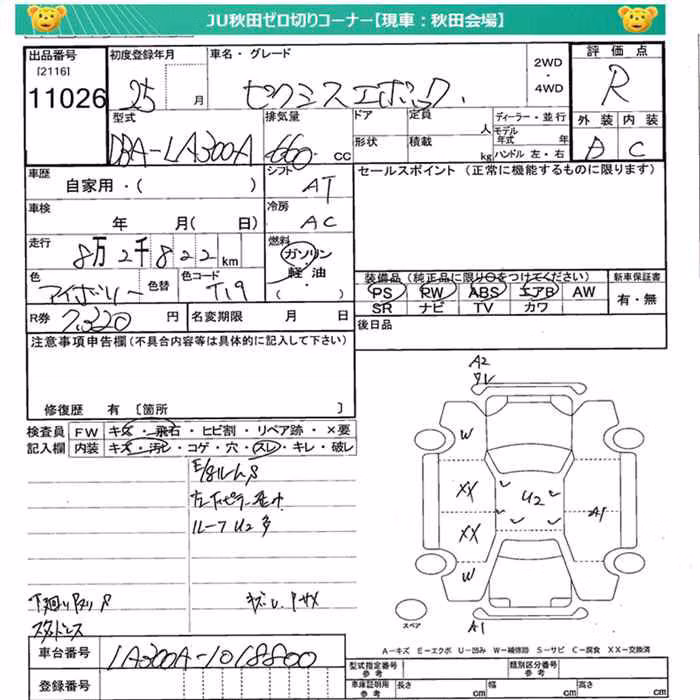 JU秋田ゼロ切りコーナー【現車:秋田会場】
出品番号 初度登録年月 車名・グレード 2WD・4WD 評価点
[2116]
11026 25 月 ゼクシスエポック R
型式 排気量 ドア 定員 人 ディーラー・並行 外装 内装
DBA-LA300A 660 cc 形状 積載 kg モデル年式 年 ハンドル 左・右 D C
車歴 シフト セールスポイント (正常に機能するものに限ります)
自家用・( ) AT
車検 冷房
年 月( 日) AC
走行 燃料
8万2千822km ガソリン・軽油
( )
色 色替 色コード 装備品(純正品に限り○をつけてください) 新車保証書
アイボリー T19 PS RW ABS エアB AW 有・無
SR ナビ TV カワ
R券 7,320 円 名変期限 月 日 後日品
注意事項申告欄(不具合内容等は具体的に記入して下さい)
修復歴 有 [箇所 ]
検査員 FW キズ・飛石・ヒビ割・リペア跡・×要
記入欄 内装 キズ・汚レ・コゲ・穴・スレ・キレ・破レ
ルーフU2多
スタットレス
A2
W
XX U2
XX A1
W
A1
スペア
A-キズ E-エクボ U-凹み W-補修跡 S-サビ C-腐食 XX-交換済
車台番号 LA300A-1018800
型式指定番号 類別区分番号
参考 参考
登録番号 車庫証明用 参考 長さ cm 幅 cm 高さ cm